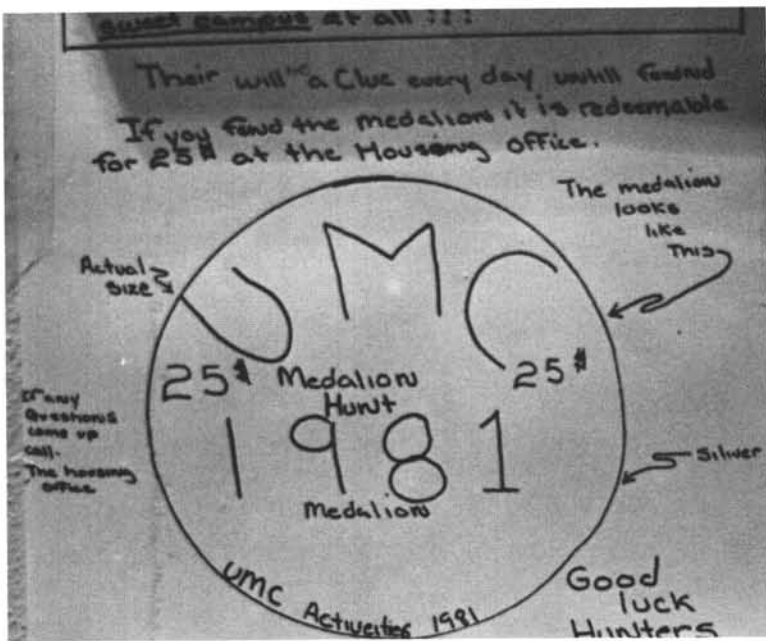 sweet campus at all !!!
Their will be a Clue every day untill found
If you fund the medalion it is redeemable
for 25$ at the Housing office.
The medalion
looks
like
This
Actual
Size
UMC
25$ Medalion 25$
Hunt
1981
Medalion
UMC Activeities 1981
If any
Questions
come up
call.
The housing
office
Siliver
Good
luck
Hunters